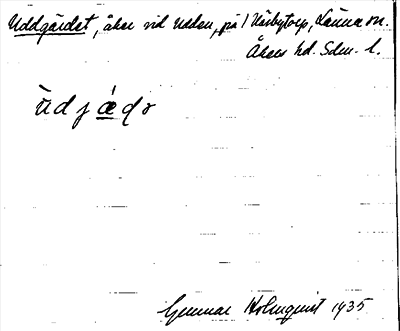 Uddgärdet, åker vid Udden, på 1 Närbytorp, Länna sn.
Åkers hd. Sdm. l.
ùdjǽdə
Gunnar Holmquist 1935